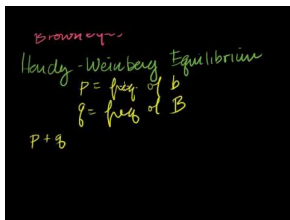 Hardy-Weinberg Equilibrium
p = freq. of b
q = freq of B
p + q